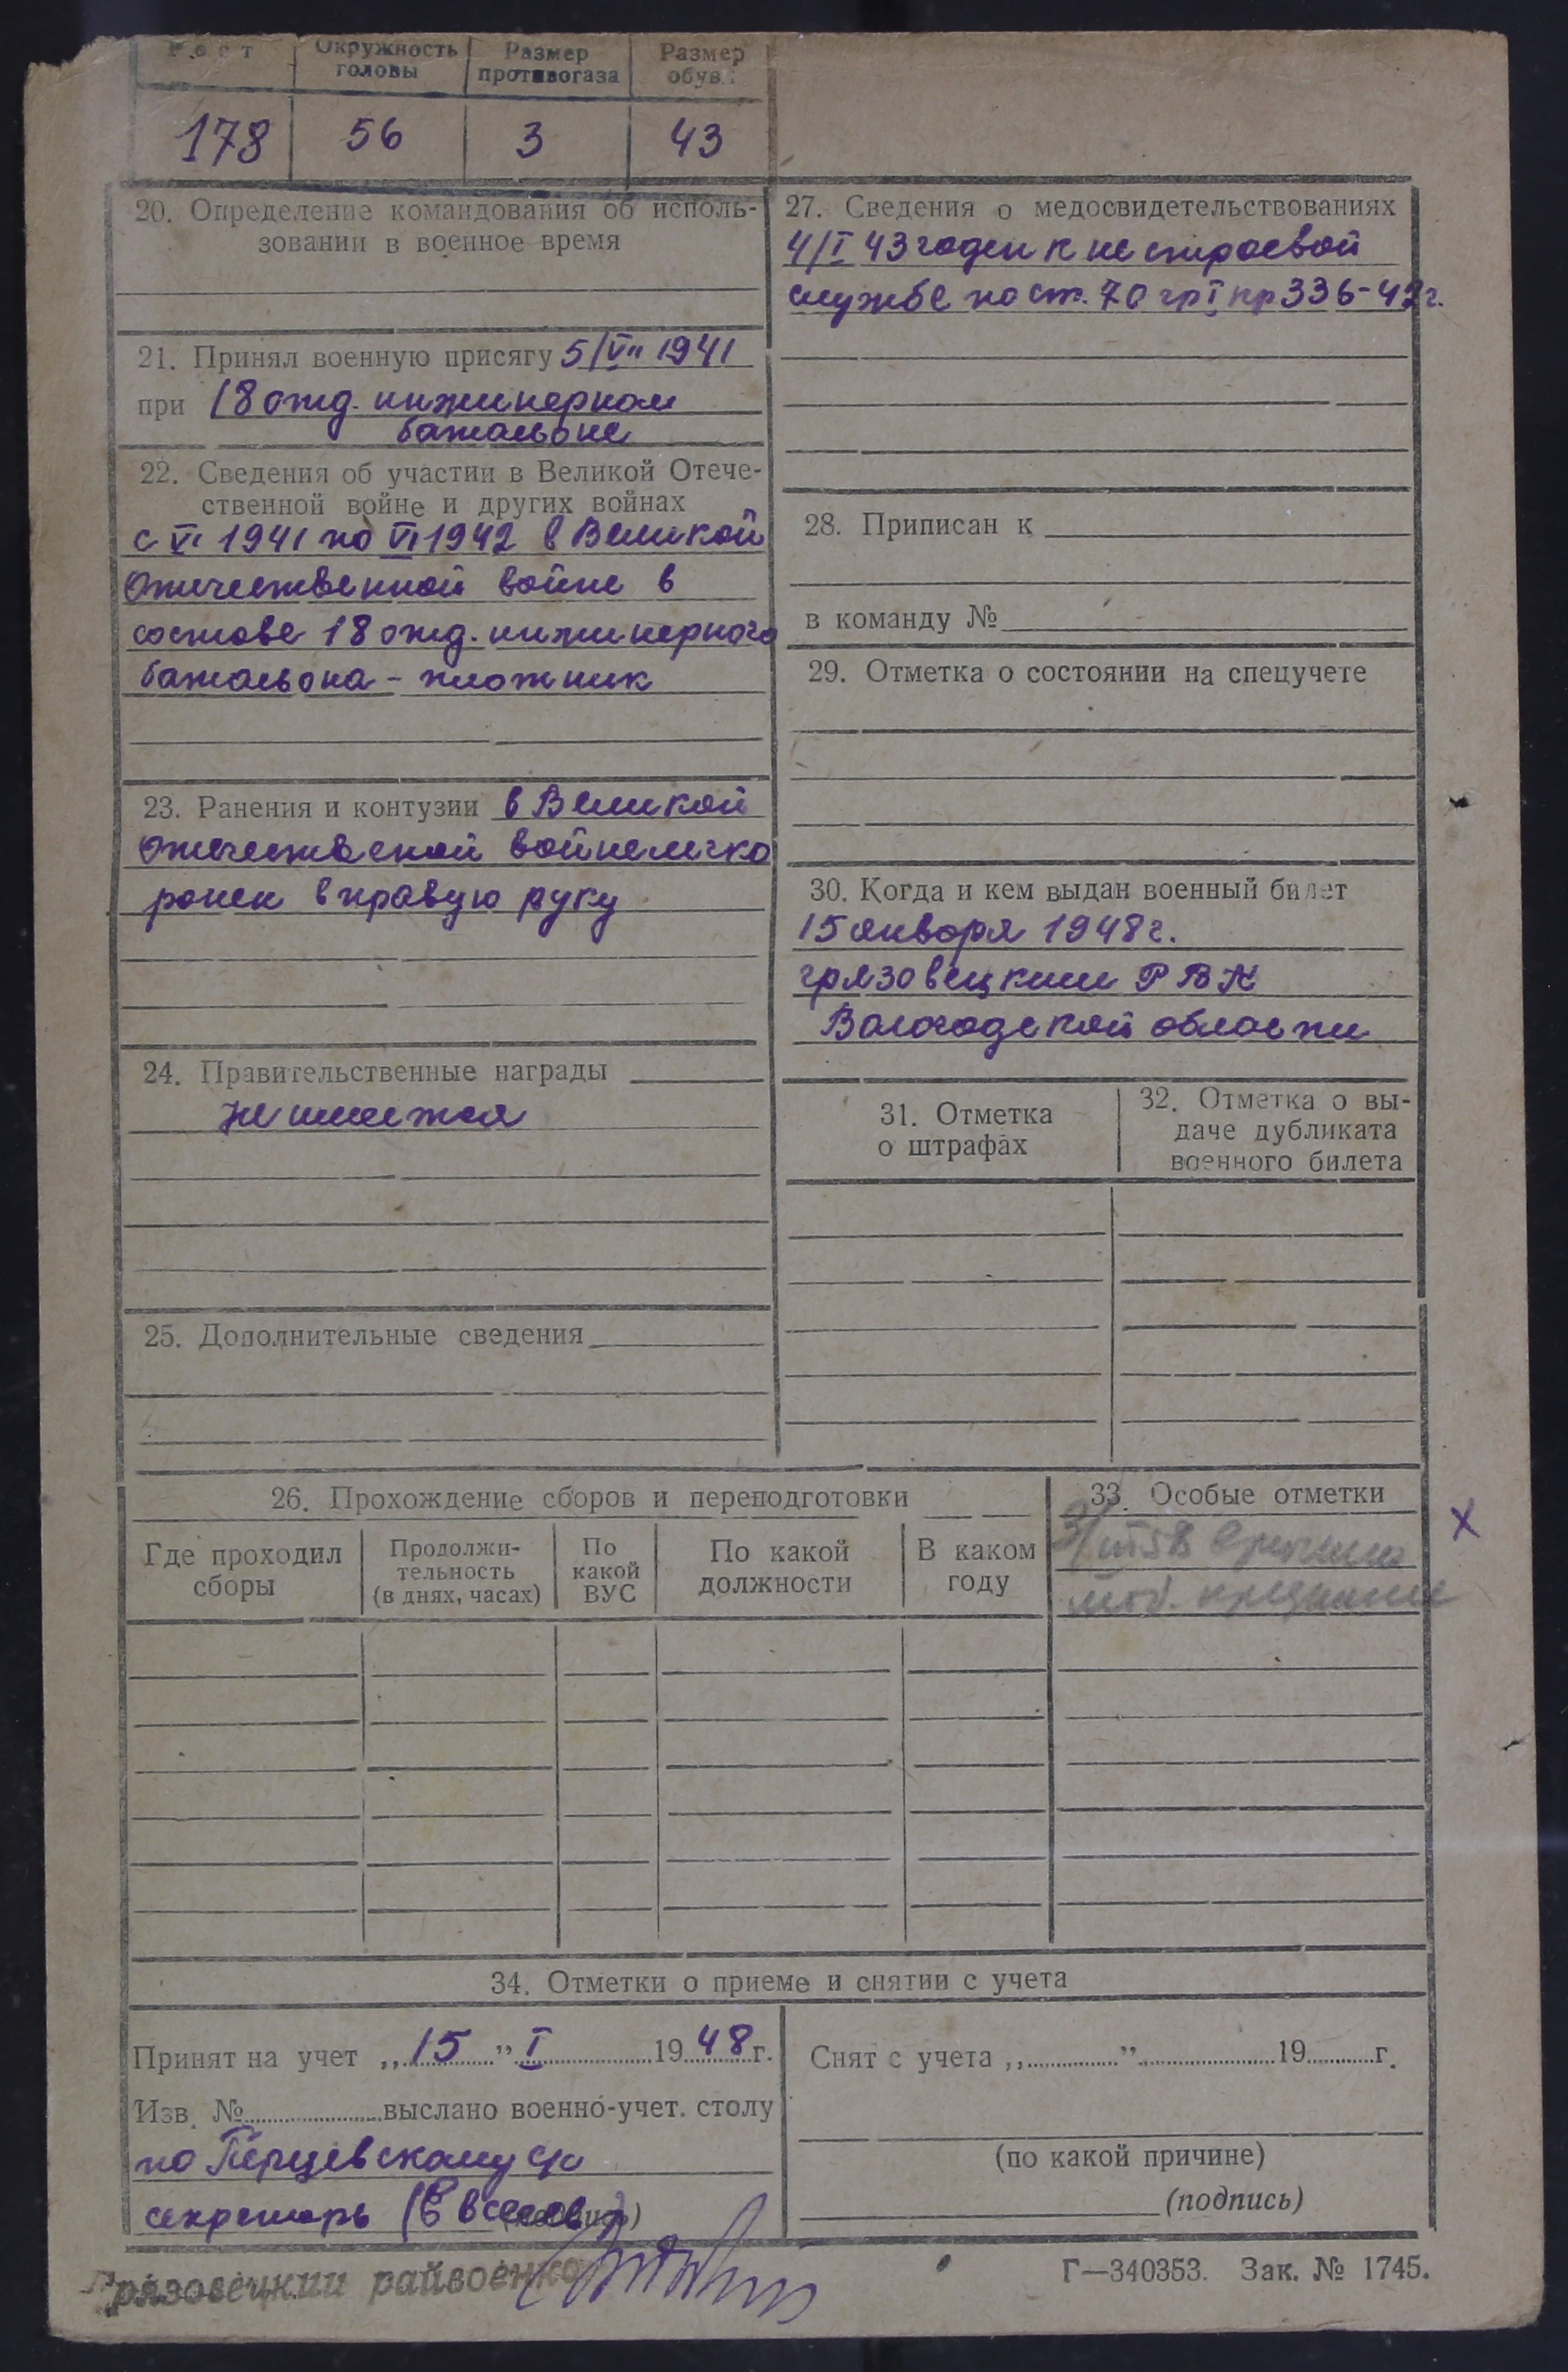 Рост
Окружность головы
Размер противогаза
Размер обув.
178
56
3
43
20. Определение командования об исполь-
зовании в военное время
21. Принял военную присягу 5/VII 1941
при 18 отд. инжинерном
батальоне
22. Сведения об участии в Великой Отече-
ственной войне и других войнах
с VI 1941 по VI 1942 в Великой
Отечественной войне в
составе 18 отд. инжинерного
батальона - плотник
23. Ранения и контузии в Великой
Отечественой войне легко
ранен в правую руку
24. Правительственные награды
Не имеется
25. Дополнительные сведения
27. Сведения о медосвидетельствованиях
4/I 43 годен к не строевой
службе по ст. 70 гр I пр 336-42г.
28. Приписан к
в команду №
29. Отметка о состоянии на спецучете
30. Когда и кем выдан военный билет
15 января 1948г.
грязовецким РВК
Вологодской области
31. Отметка
о штрафах
32. Отметка о вы-
даче дубликата
военного билета
26. Прохождение сборов и переподготовки
Где проходил
сборы
Продолжи-
тельность
(в днях, часах)
По
какой
ВУС
По какой
должности
В каком
году
33. Особые отметки
моб. предписание
34. Отметки о приеме и снятии с учета
Принят на учет „15” I 1948г.
Изв. № выслано военно-учет. столу
по Перцевскому с/с
секретарь (подпись)
Грязовецкий райвоенко
Снят с учета „ ” 19 г.
(по какой причине)
(подпись)
Г—340353. Зак. № 1745.